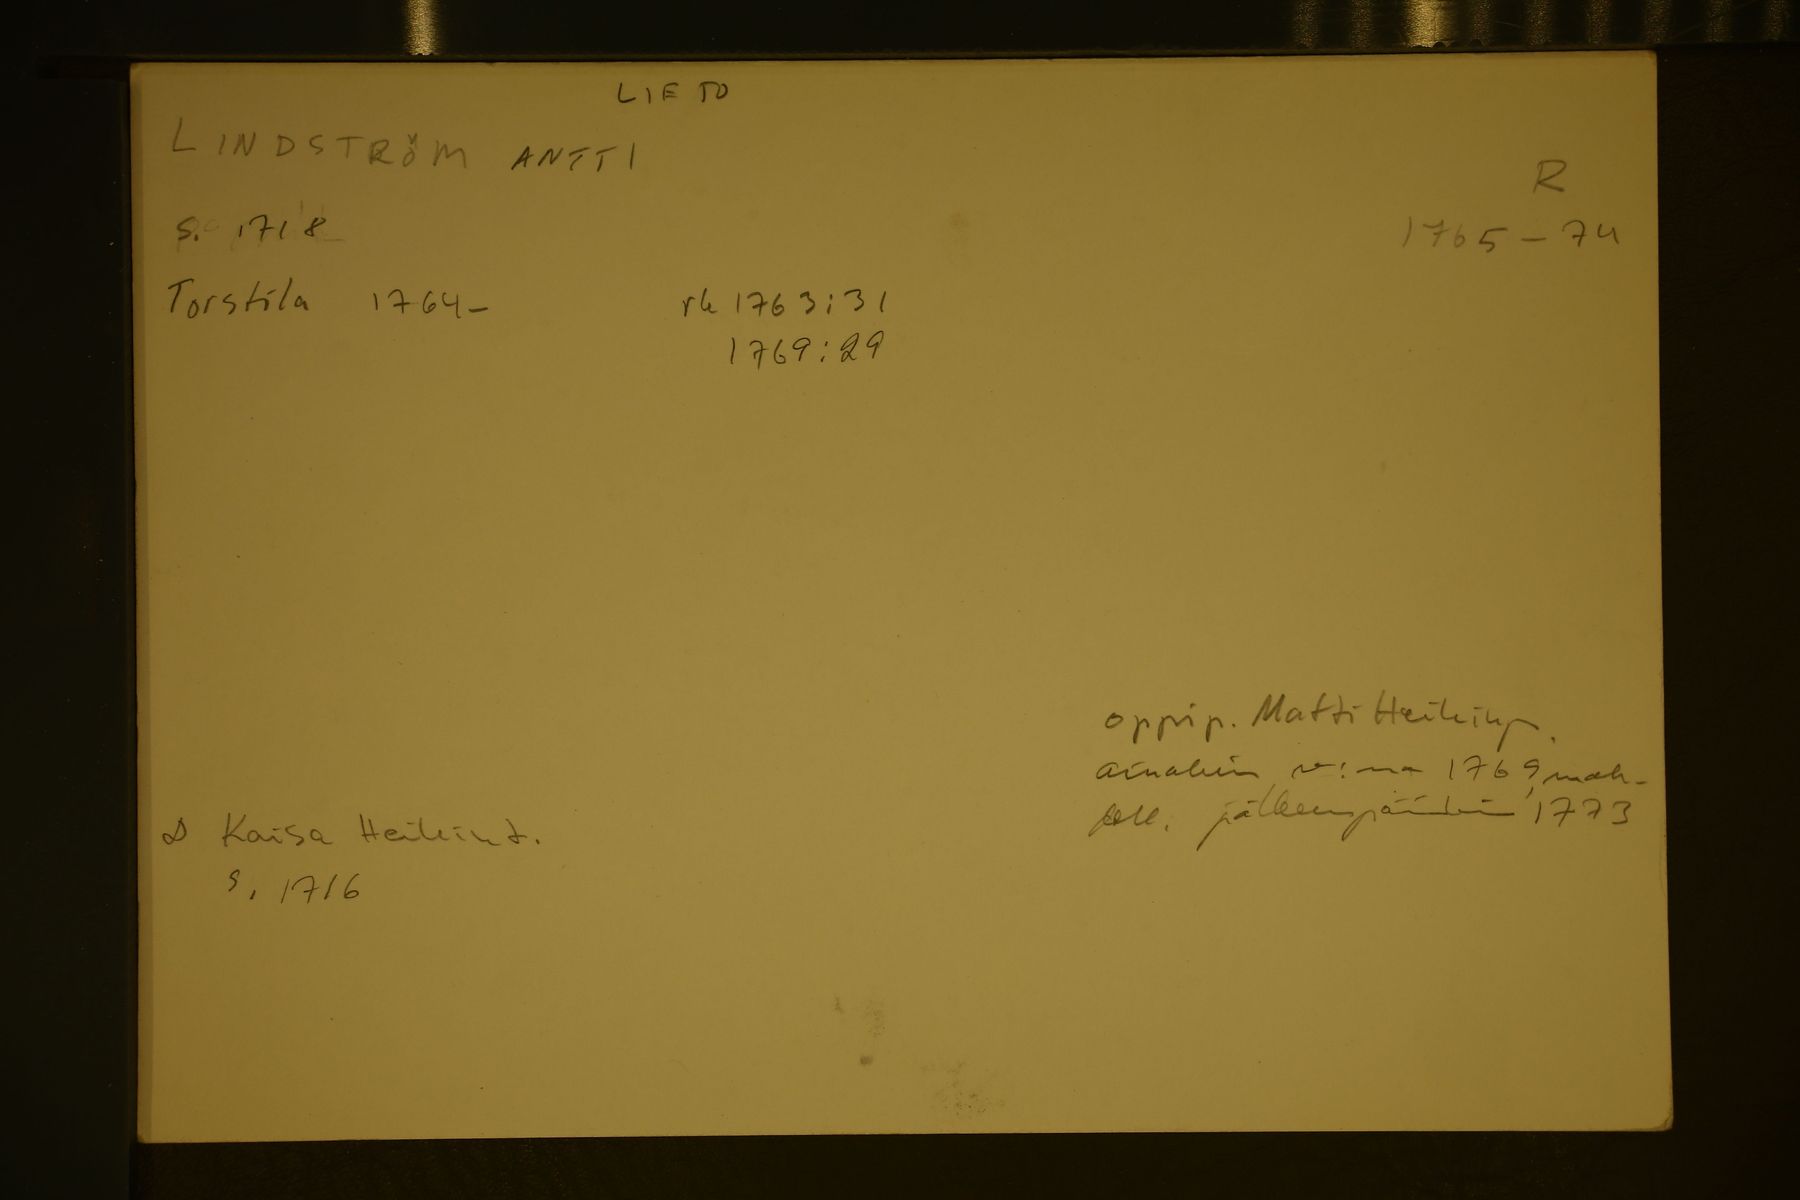 LIETO
LINDSTRÖM ANTTI
R
s. 1718
1765-74
Torstila 1764- rk 1763:31
1769:29
oppip. Matti Heikinp.
ainakin v:na 1769, mah-
doll. jälkeenpäinkin 1773
∞ Kaisa Heikint.
s. 1716